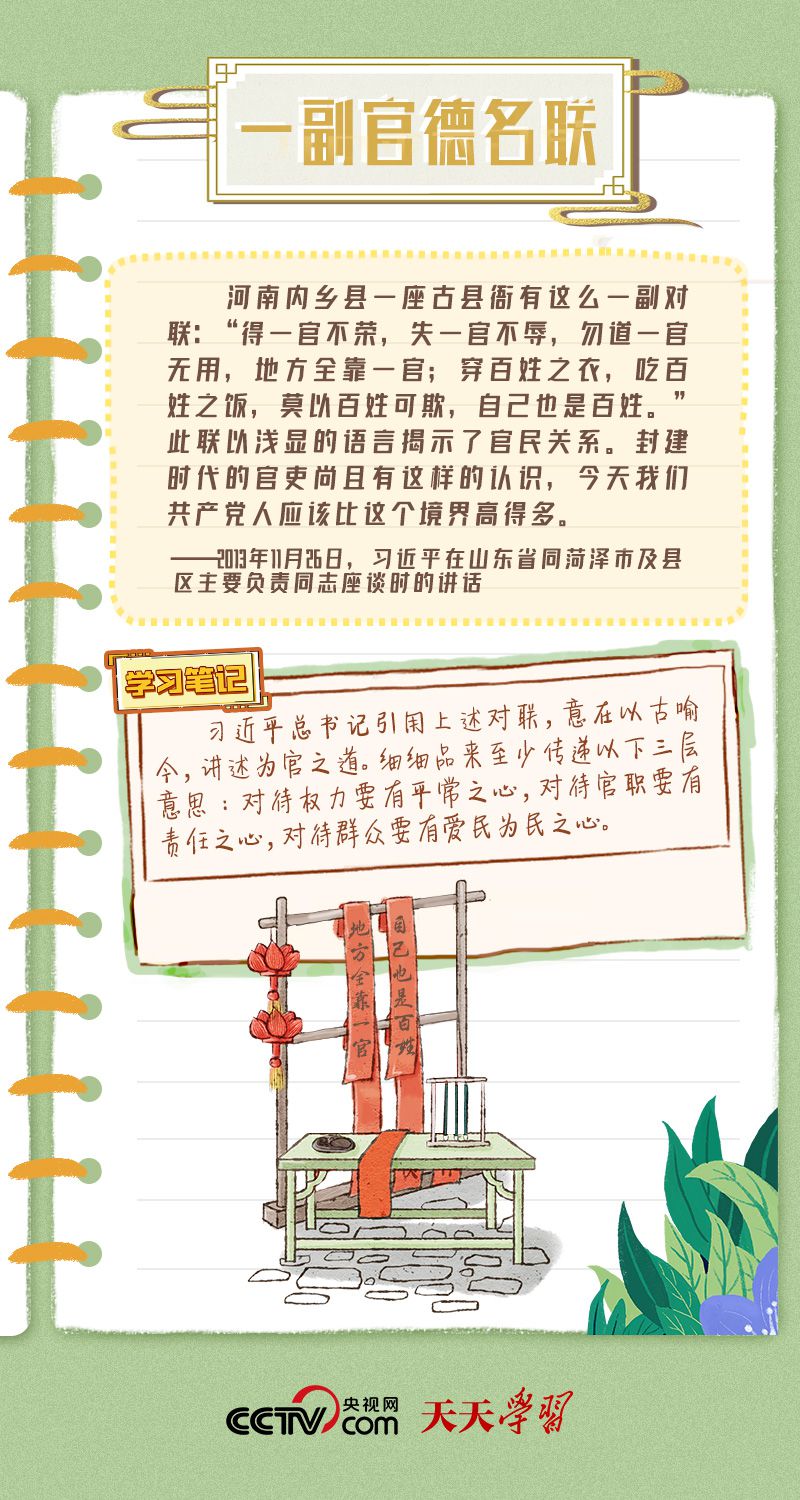 一副官德名联
河南内乡县一座古县衙有这么一副对
联：“得一官不荣，失一官不辱，勿道一官
无用，地方全靠一官；穿百姓之衣，吃百
姓之饭，莫以百姓可欺，自己也是百姓。”
此联以浅显的语言揭示了官民关系。封建
时代的官吏尚且有这样的认识，今天我们
共产党人应该比这个境界高得多。
——2013年11月26日，习近平在山东省同菏泽市及县
区主要负责同志座谈时的讲话
学习笔记
习近平总书记引用上述对联，意在以古喻
今，讲述为官之道。细细品来至少传递以下三层
意思：对待权力要有平常之心，对待官职要有
责任之心，对待群众要有爱民为民之心。
自己也是百姓
地方全靠一官
CCTV.com 央视网
天天学習